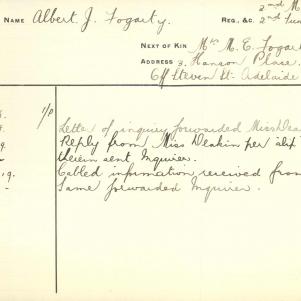 2nd M
NAME Albert J. Fogarty. REG., &C. 2nd Tun
NEXT OF KIN Mrs M. E. Fogart
ADDRESS 3, Hanson Place.
Off Steven St. Adelaide
Letter of inquiry forwarded Miss Dea
Reply from Miss Deakin per
9. therein sent Inquirer.
19. Cabled information received from
Same forwarded Inquirer.